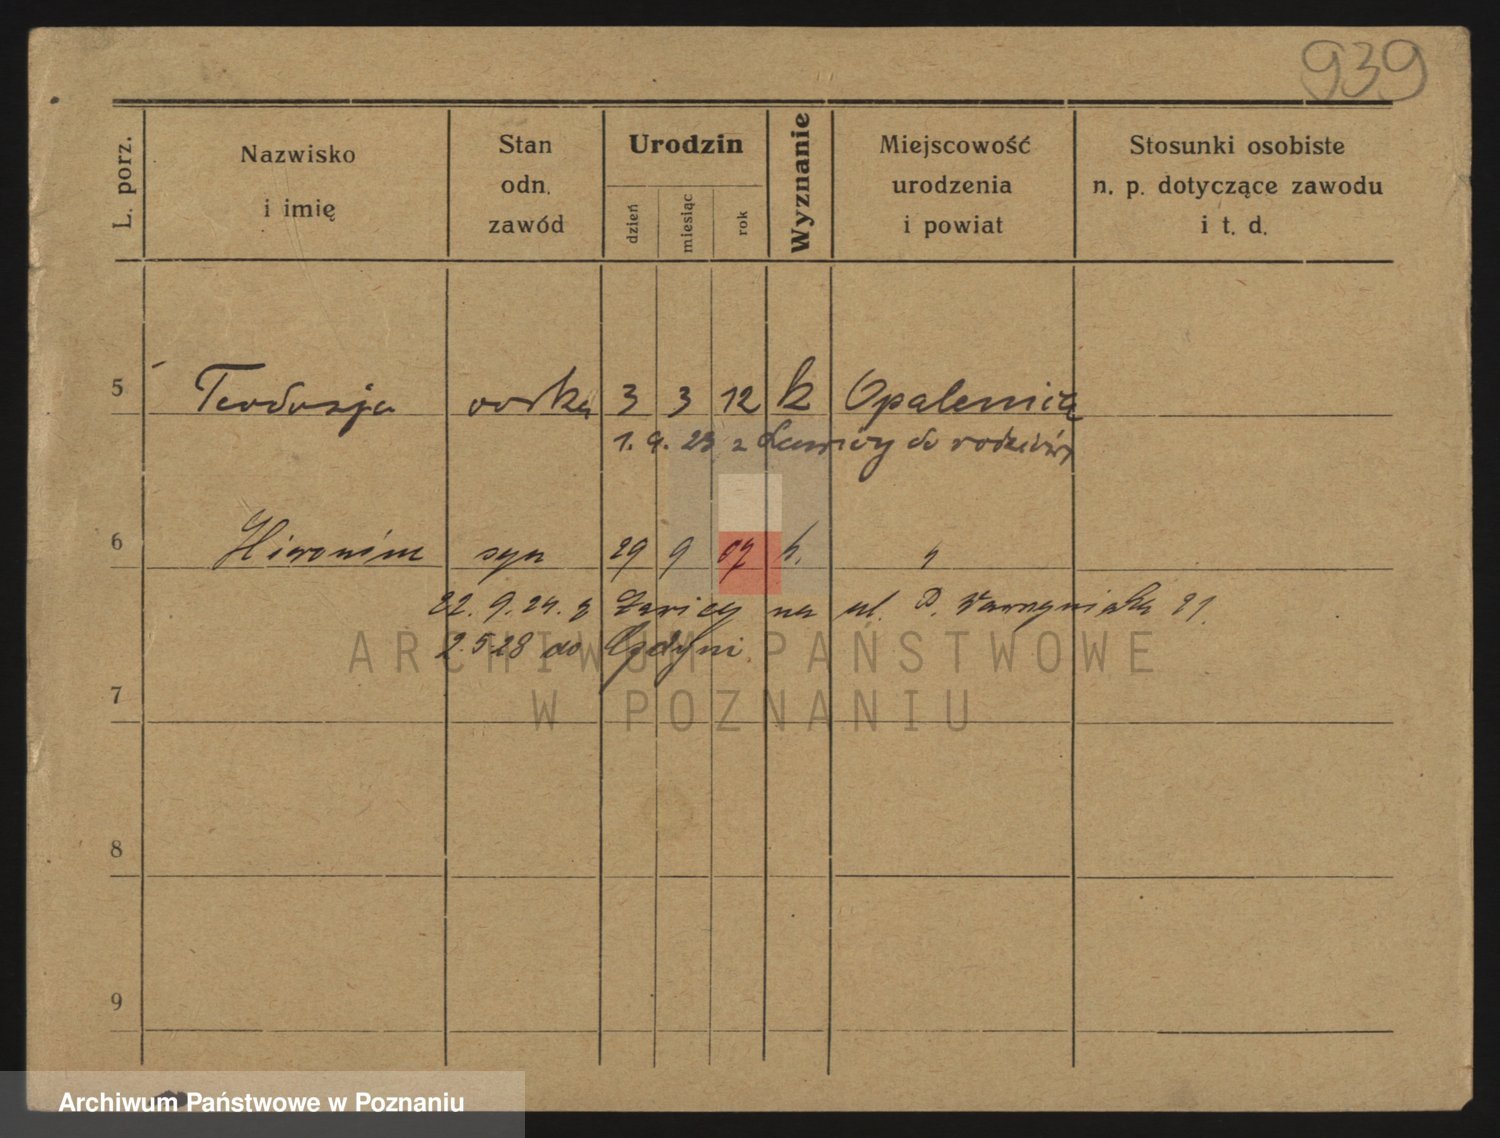 939
L. porz.
Nazwisko
i imię
Stan
odn.
zawód
Urodzin
dzień
miesiąc
rok
Wyznanie
Miejscowość
urodzenia
i powiat
Stosunki osobiste
n. p. dotyczące zawodu
i t. d.
5 Teodozja córka 3 3 12 k Opalenica
1. 9. 23 z Ławicy do rodziców
6 Hieronim syn 29 9 07 k. "
22. 9. 24. z Ławicy na ul. 21.
2.5.28 do Gdyni
ARCHIWUM PAŃSTWOWE
W POZNANIU
7
8
9
Archiwum Państwowe w Poznaniu